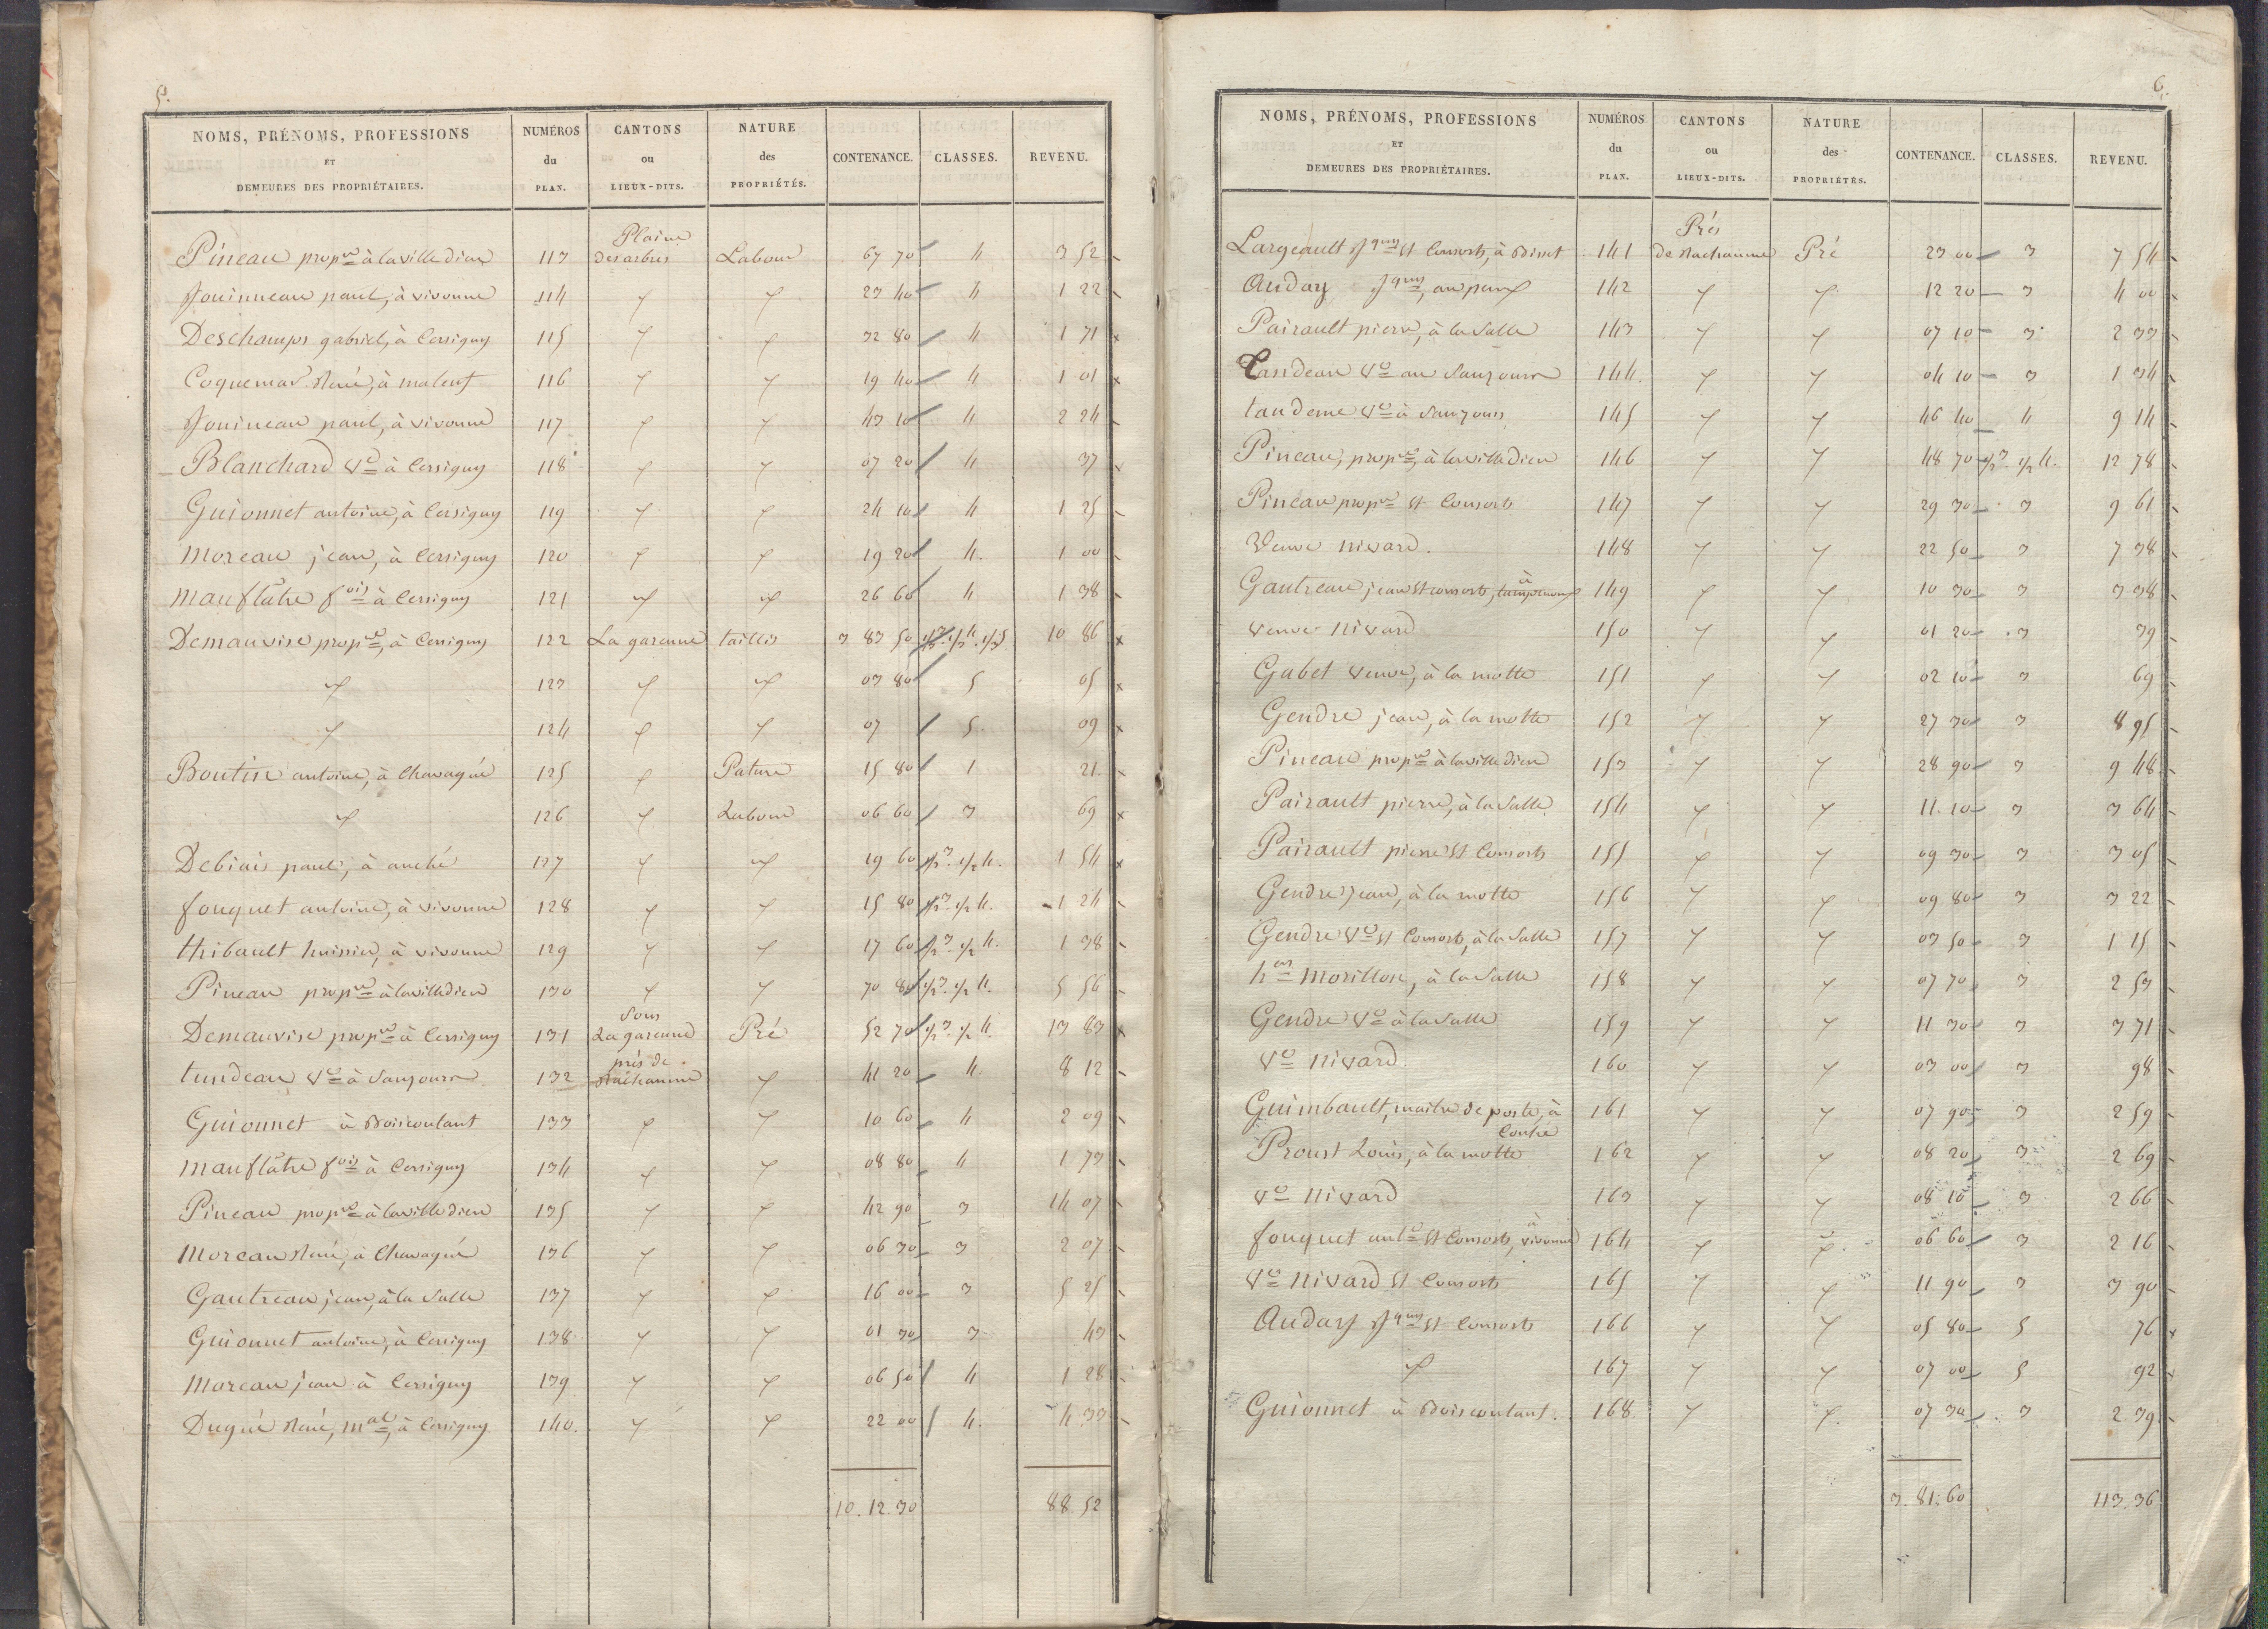 5.
NOMS, PRÉNOMS, PROFESSIONS ET DEMEURES DES PROPRIÉTAIRES. NUMÉROS du PLAN. CANTONS ou LIEUX-DITS. NATURE des PROPRIÉTÉS. CONTENANCE. CLASSES. REVENU.
Pineau propre à la ville dieu 113 Plaine des arbres Labour 67 70 4 3 52
Jouinneau paul, à vivonne 114 " " 23 40 4 1 22
Deschamps gabriel, à Cersigny 115 " " 32 80 4 1 71
Coquemar René, à 116 " " 19 40 4 1 01
Jouineau paul, à vivonne 117 " " 43 10 4 2 24
Blanchard Ve à Cersigny 118 " " 07 20 4 37
Guionnet antoine, à Cersigny 119 " " 24 10 4 1 25
Moreau jean, à Cersigny 120 " " 19 20 4. 1 00
Mauflatre fois à Cersigny 121 " " 26 60 4 1 38
Demauvise propre, à Cersigny 122 La garenne taillis 3 83 50 1/3 3. 1/3 4. 1/3 5. 10 86
" 123 " " 03 80 5 05
" 124 " " 07 5. 09
Boutin antoine, à Chavagné 125 " Pature 15 80 1 21.
" 126 " Labour 06 60 3 69
Debiais paul, à anché 127 " " 19 60 1/2 3. 1/2 4. 1 54
fouquet antoine, à vivonne 128 " " 15 80 1/2 3. 1/2 4. 1 24
thibault huissier, à vivonne 129 " " 17 60 1/2 3. 1/2 4. 1 38
Pineau propre à la ville dieu 130 " " 70 80 1/2 3. 1/2 4. 5 56
Demauvise propre à Cersigny 131 Sous La garenne Pré 52 70 1/2 3. 1/2 4. 13 83
tandeau Ve à Sanzours 132 prés de Rachaume " 41 20 4. 8 12
Guionnet à Boiscoutant 133 " " 10 60 4 2 09
Mauflatre fois à Cersigny 134 " " 08 80 4 1 73
Pineau propre à la ville dieu 135 " " 42 90 3 14 07
Moreau René, à Chavagné 136 " " 06 30 3 2 07
Gautreau jean, à la Salle 137 " " 16 00 3 5 25
Guionnet antoine, à Cersigny 138 " " 01 30 3 43
Moreau jean à Cersigny 139 " " 06 50 4 1 28
Dugué René, mal, à Cersigny 140. " " 22 00 4. 4 33
10. 12. 30 88 52
6.
NOMS, PRÉNOMS, PROFESSIONS ET DEMEURES DES PROPRIÉTAIRES. NUMÉROS du PLAN. CANTONS ou LIEUX-DITS. NATURE des PROPRIÉTÉS. CONTENANCE. CLASSES. REVENU.
Largeault Jques et Consorts, à 141 Prés de Rachaume Pré 23 00 3 7 54
Auday Jques, 142 " " 12 20 3 4 00
Pairault pierre, à la Salle 143 " " 07 10 3. 2 33
Tandeau Ve au Sanzours 144. " " 04 10 3 1 34
Ve à Sanzours 145 " " 46 40 4 9 14
Pineau, propre, à la ville dieu 146 " " 48 70 1/2 3. 1/2 4. 12 78
Pineau propre et Consorts 147 " " 29 30 3 9 61
Veuve nivard. 148 " " 22 50 3 7 38
Gautreau jean et consorts, à 149 " " 10 30 3 3 38
veuve Nivard 150 " " 01 20 3 39
Gabet veuve, à la motte 151 " " 02 10 3 69
Gendre jean, à la motte 152 " " 27 30 3 8 95
Pineau propre à la ville dieu 153 " " 28 90 3 9 48
Pairault pierre, à la Salle 154 " " 11. 10 3 3 64
Pairault pierre et Consorts 155 " " 09 30 3 3 05
Gendre jean, à la motte 156 " " 09 80 3 3 22
Gendre Ve et Consorts, à la Salle 157 " " 03 50 3 1 15
hers Morillon, à la Salle 158 " " 07 70 3 2 53
Gendre Ve à la Salle 159 " " 11 30 3 3 71
Ve nivard. 160 " " 03 00 3 98
Guimbault, maitre de poste, à Couhé 161 " " 07 90 3 2 59
Proust Louis, à la motte 162 " " 08 20 3 2 69
Ve nivard 163 " " 08 10 3 2 66
fouquet ante et Consorts, à vivonne 164 " " 06 60 3 2 16
Ve nivard et Consorts 165 " " 11 90 3 3 90
Auday Jques et Consorts 166 " " 05 80 5 76
" 167 " " 07 00 5 92
Guionnet à Boiscoutant. 168 " " 07 30 3 2 39
3. 81. 60 113. 36